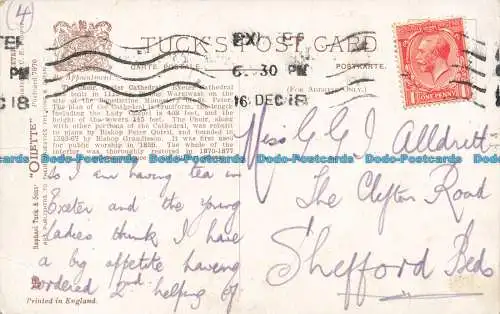 (4)
TUCK'S POST CARD
CARTE POSTALE
POSTKARTE.
By Appointment
(For Address Only.)
EXETER
6.30 PM
16 DEC 18
PM
DEC 18
ONE PENNY
The Choir, Exeter Cathedral. Exeter Cathedral
of the Benedictine Monastery of St. Peter.
The Plan of the Cathedral is cruciform, the length
including the Lady Chapel is 408 feet, and the
height of the towers 145 feet. The Choir, with
other portions of the Cathedral, was rebuilt
by Bishop Peter Quivil, and founded in
by Bishop Grandisson. It was first used
for public worship in 1328. The whole of the
interior was thoroughly restored in 1870-1877
Raphael Tuck & Sons' "OILETTE"
As I am having tea in
Exeter and the young
Ladies think I have
a big appetite having
ordered 2nd helping of
Printed in England.
Miss G J Alldritt
The Clifton Road
Shefford Beds
Postcards